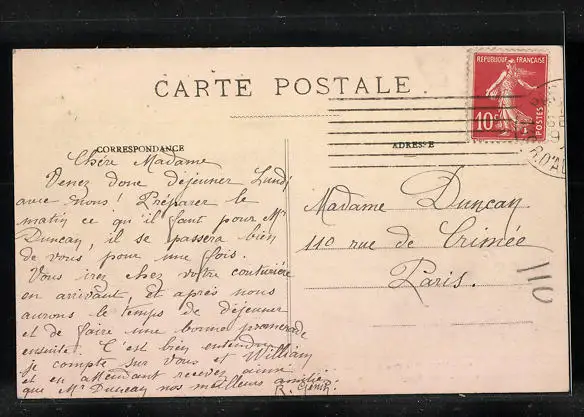 CARTE POSTALE.
REPUBLIQUE FRANÇAISE
10c
POSTES
CORRESPONDANCE
ADRESSE
Chère Madame
Venez donc déjeuner Lundi
avec nous! Préparer le
matin ce qu'il faut pour Mr
Duncan, il se passera bien
de vous pour une fois.
Vous irez chez votre couturière
en arrivant, et après nous
aurons le temps de déjeuner
et de faire une bonne promenade
ensuite. C'est bien entendu
je compte sur vous et William
et en attendant recevez ainsi
que Mr Duncan nos meilleurs amitiés
R.
Madame Duncan
110 rue de Crimée
Paris.
110